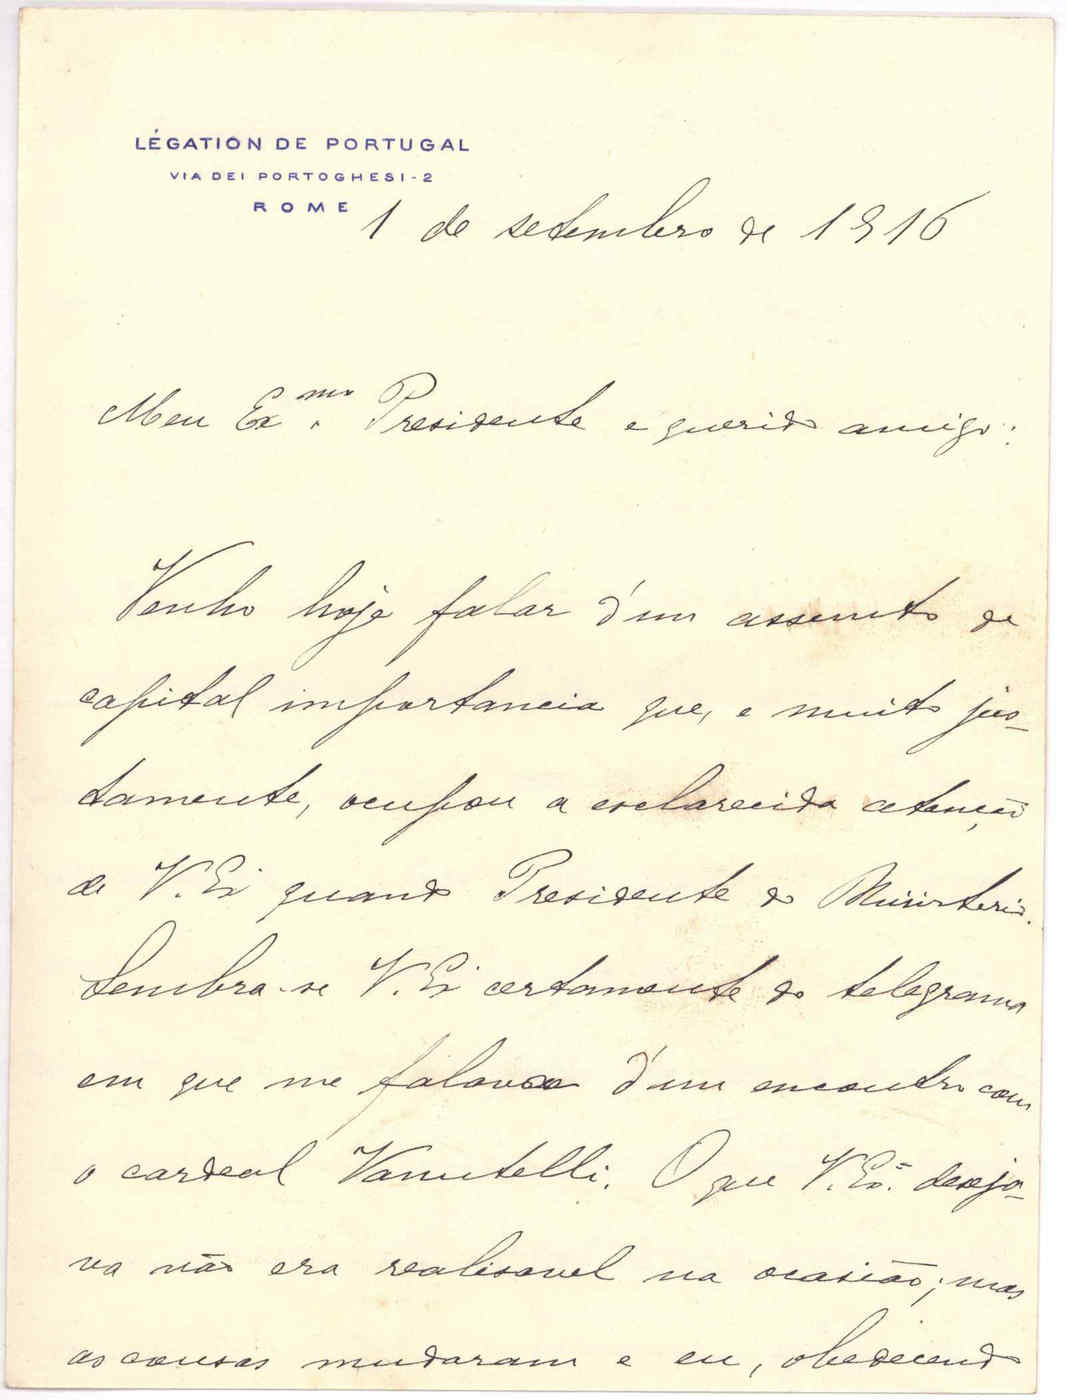 LÉGATION DE PORTUGAL
VIA DEI PORTOGHESI-2
ROME
1 de setembro de 1916
Meu Ex.mo Presidente e querido amigo:
Venho hoje falar d'um assunto de
capital importancia que, e muito jus-
tamente, ocupou a esclarecida atenção
de V. Ex quando Presidente do Ministerio.
Lembra-se V. Ex certamente do telegrama
em que me falava d'um encontro com
o cardeal Vanutelli. O que V. Ex.ª deseja-
va não era realisavel na ocasião; mas
as cousas mudaram e eu, obedecendo